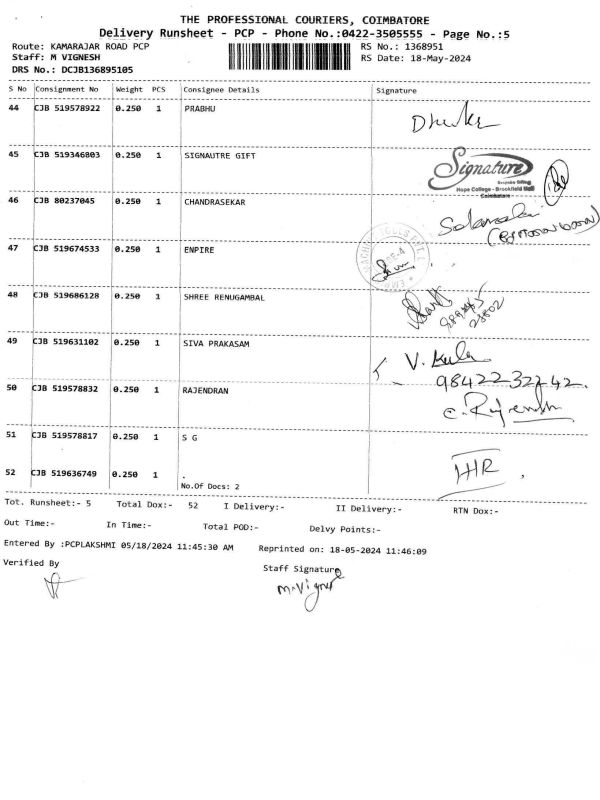 THE PROFESSIONAL COURIERS, COIMBATORE
Delivery Runsheet - PCP - Phone No.:0422-3505555 - Page No.:5
Route: KAMARAJAR ROAD PCP RS No.: 1368951
Staff: M VIGNESH RS Date: 18-May-2024
DRS No.: DCJB136895105
S No Consignment No Weight PCS Consignee Details Signature
44 CJB 519578922 0.250 1 PRABHU
45 CJB 519346803 0.250 1 SIGNAUTRE GIFT
Signature
Bespoke Gifting
Hope College - Brookfield Mall
Coimbatore
46 CJB 80237045 0.250 1 CHANDRASEKAR
47 CJB 519674533 0.250 1 ENPIRE
48 CJB 519686128 0.250 1 SHREE RENUGAMBAL
49 CJB 519631102 0.250 1 SIVA PRAKASAM
V. Kula
9842232242.
50 CJB 519578832 0.250 1 RAJENDRAN
51 CJB 519578817 0.250 1 S G
52 CJB 519636749 0.250 1 .
No.Of Docs: 2
Tot. Runsheet:- 5 Total Dox:- 52 I Delivery:- II Delivery:- RTN Dox:-
Out Time:- In Time:- Total POD:- Delvy Points:-
Entered By :PCPLAKSHMI 05/18/2024 11:45:30 AM Reprinted on: 18-05-2024 11:46:09
Verified By Staff Signature
M.Vignesh